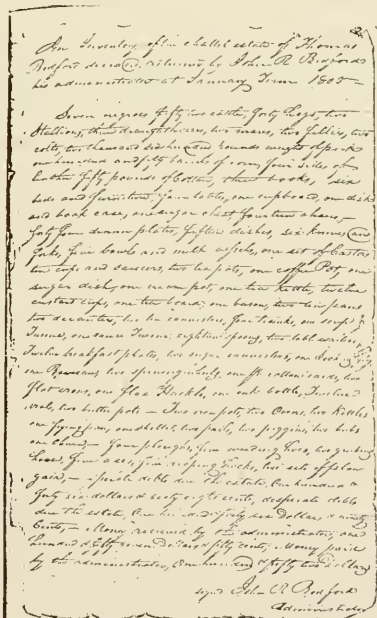 An Inventory of the chattel estate of Thomas
Bedford decesd returned by John R Bedford
his administrator at January Term 1805 —
Seven negroes fifty two cattle, forty hogs, two
Stallions, three draught horses, two mares, two fillies, two
colts, two thousand six hundred pounds weight of pork
one hundred and fifty barrels of corn, four sides of
leather fifty pounds of Cotton, three books, six
beds and furniture, four tables, one cupboard, one desk
and book case, one sugar chest fourteen chairs,
forty four dinner plates, fifteen dishes, six knives and
forks, five bowls and milk vessels, one set of Castors
ten cups and saucers, two tea pots, one coffee Pot, one
sugar dish, one cream pot, one tea kettle, twelve
custard cups, one tea board, one bason, two
two decanters, tea cannisters, four trunks, one soup
Tureen, one sauce Tureen, eighteen spoons, two table waiters
Twelve breakfast plates, two sugar cannisters, one
one two spinning wheels, one pr cotton cards, two
flat irons, one Flax Hackle, one ink bottle, Twelve
two butter pots — Two iron pots, two Ovens, two Kettles
one frying pan, one skillet, two pails, two piggins, two tubs
one churn, — four ploughs, five weeding hoes, two grubing
hoes, five axes, five reaping hooks, two sets of plow
debts due the estate One hundred &
forty six dollars & sixty eight cents, desperate debts
due the estate, One hundred forty six Dollars & ninety
Cents, — Money received by the administrator, one
hundred & fifty seven Dollars & fifty cents, Money paid
by the administrator, One hundred & fifty two dollars
signd John R Bedford
administrator